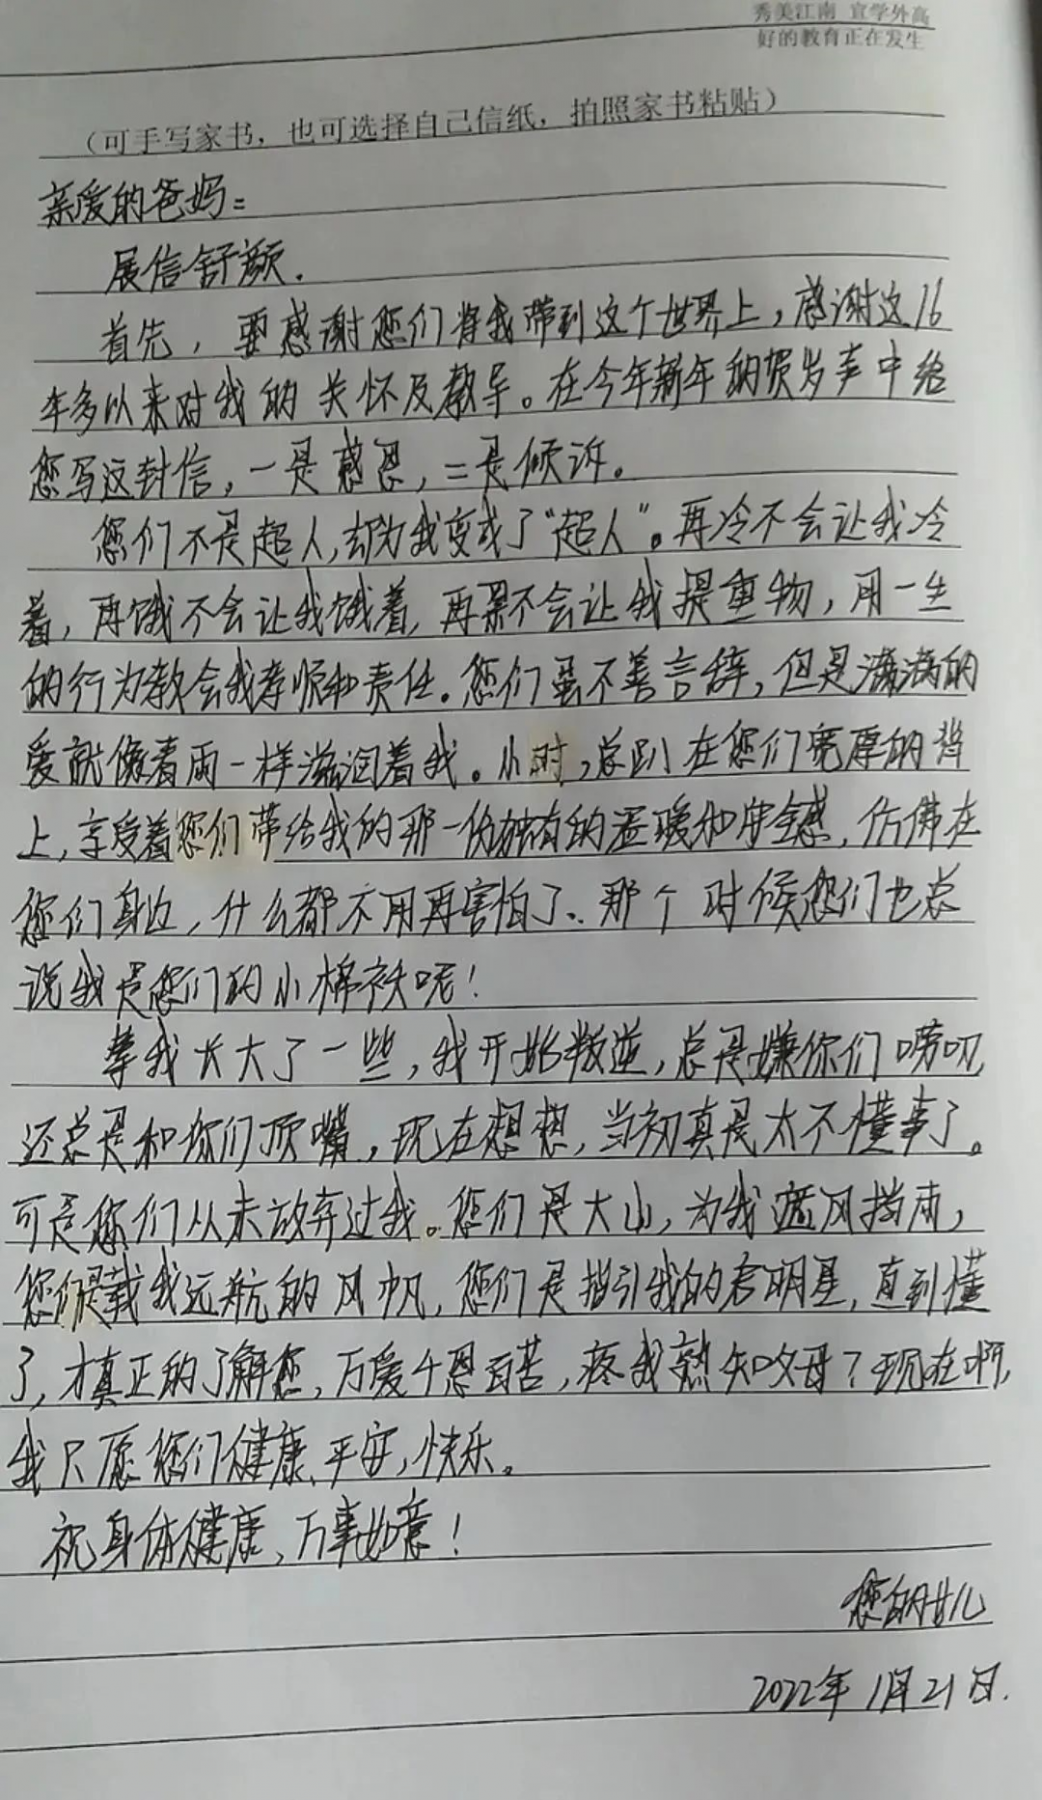 秀美江南 宜学外高
好的教育正在发生
（可手写家书，也可选择自己信纸，拍照家书粘贴）
亲爱的爸妈：
展信舒颜.
首先，要感谢您们将我带到这个世界上，感谢这16
年多以来对我的关怀及教导。在今年新年的贺岁声中给
您写这封信，一是感恩，二是倾诉。
您们不是超人，却为我变成了“超人”。再冷不会让我冷
着，再饿不会让我饿着，再累不会让我提重物，用一生
的行为教会我孝顺和责任。您们虽不善言辞，但是满满的
爱就像春雨一样滋润着我。小时，总趴在您们宽厚的背
上，享受着您们带给我的那一份独有的温暖和安全感，仿佛在
您们身边，什么都不用再害怕了。那个时候您们也总
说我是您们的小棉袄呢！
等我长大了一些，我开始叛逆，总是嫌你们唠叨，
还总是和你们顶嘴，现在想想，当初真是太不懂事了。
可是您们从未放弃过我。您们是大山，为我遮风挡雨，
您们是载我远航的风帆，您们是指引我的启明星，直到懂
了，才真正的了解您，万爱千恩百苦，疼我孰知父母？现在啊，
我只愿您们健康、平安，快乐。
祝身体健康、万事如意！
您的女儿
2022年1月21日.